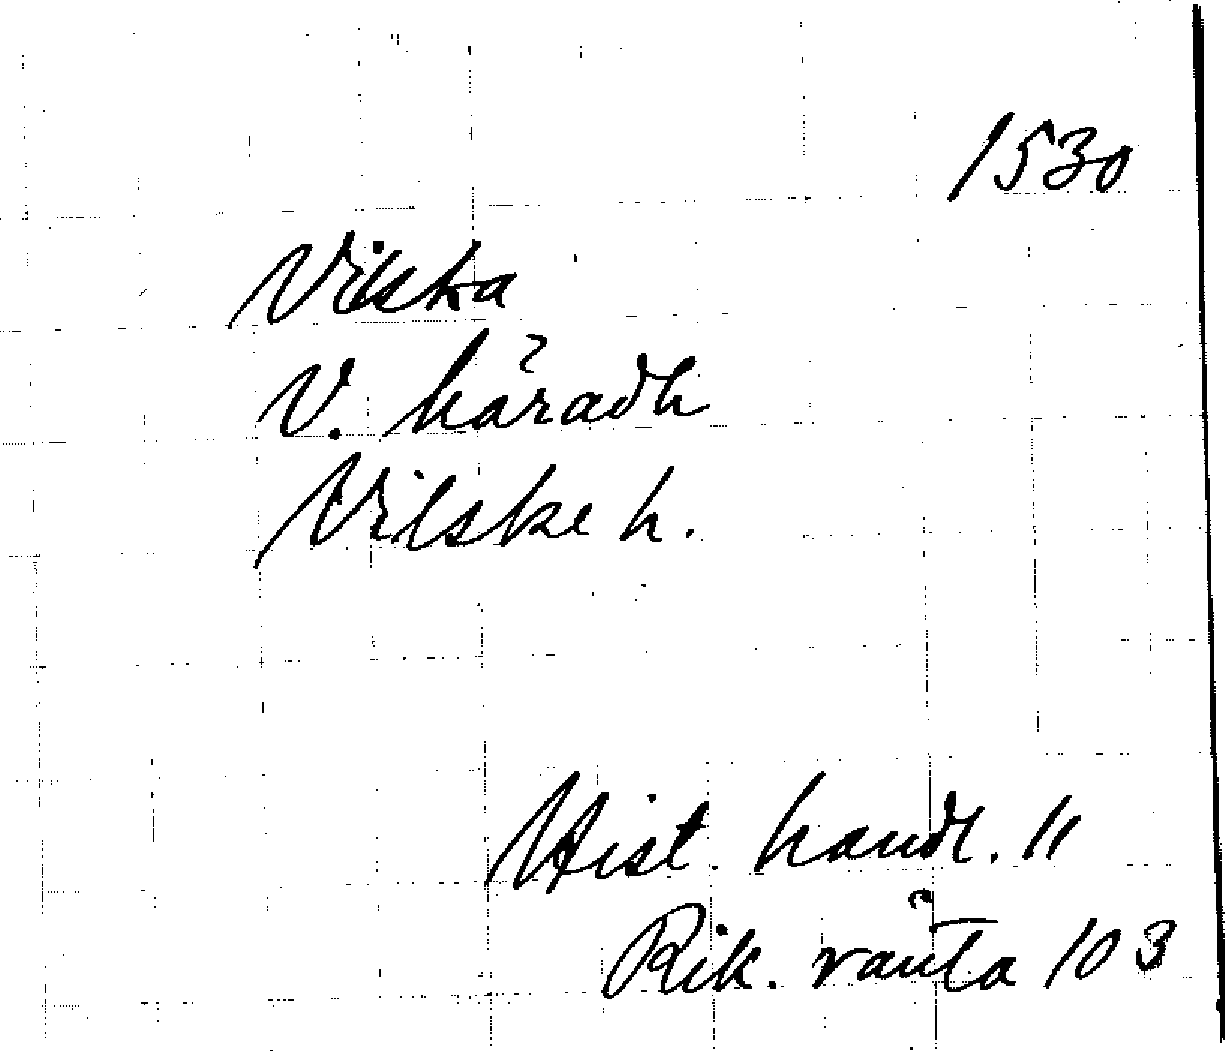 1530
Vilska
V. häradh
Vilske h.
Hist. handl. 11
Rik. ränta 103